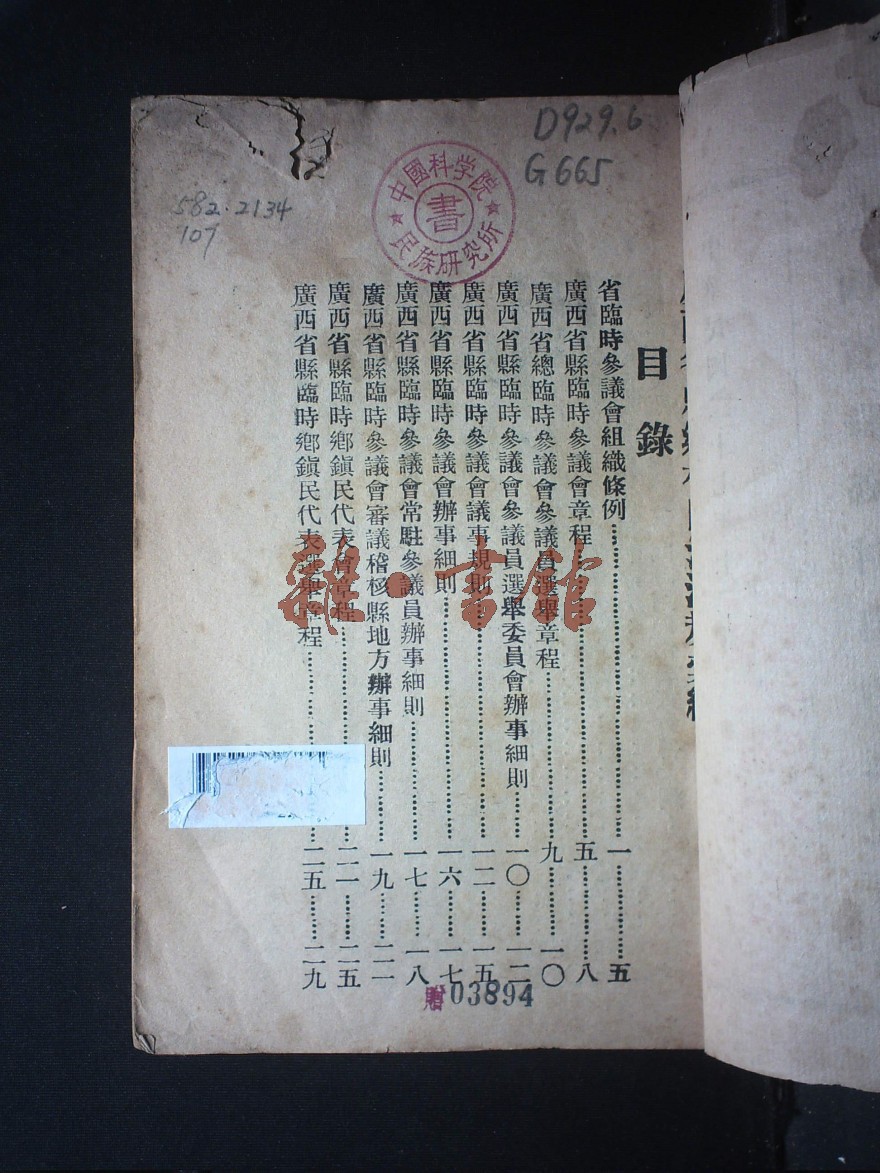 D929.6
G665
582.2134
107
中國科学院
書
民族研究所
目錄
省臨時參議會組織條例……一……五
廣西省縣臨時參議會章程……五……八
廣西省總臨時參議會參議員選舉章程……九……一〇
廣西省縣臨時參議會參議員選舉委員會辦事細則……一〇……一二
廣西省縣臨時參議會議事規則……一二……一五
廣西省縣臨時參議會辦事細則……一六……一七
廣西省縣臨時參議會常駐參議員辦事細則……一七……一八
廣西省縣臨時參議會審議稽核縣地方辦事細則……一九……二一
廣西省縣臨時鄉鎮民代表會章程……二一……二五
廣西省縣臨時鄉鎮民代表選舉章程……二五……二九
贈 03894
雜·書館